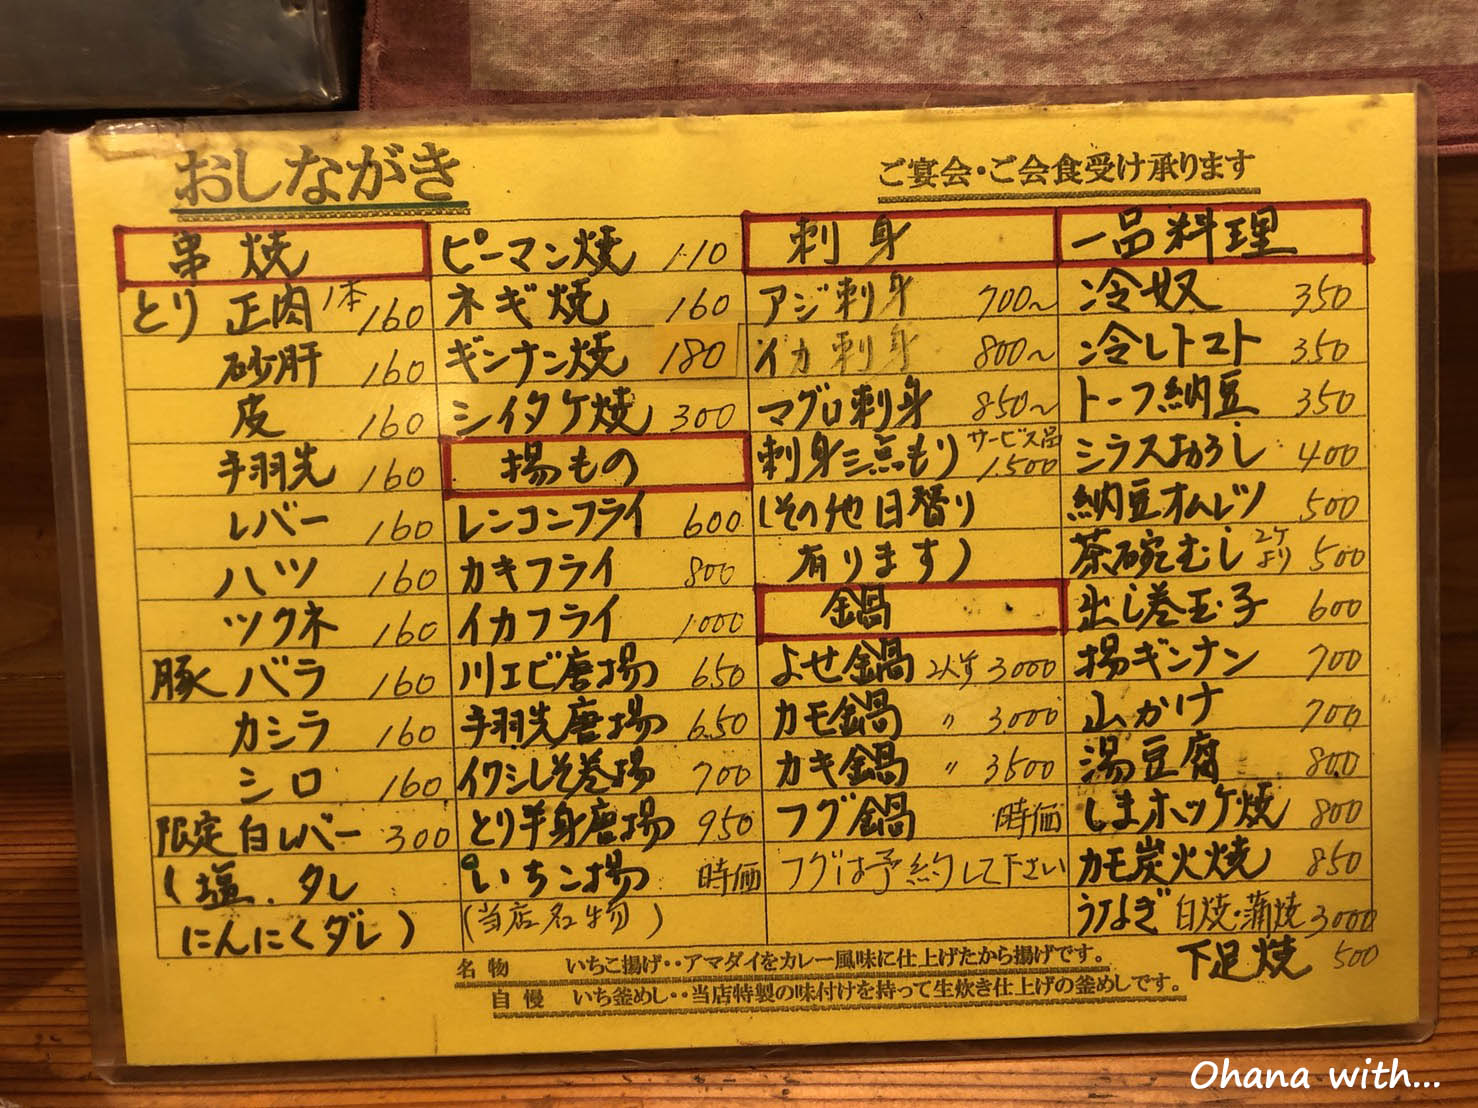 おしながき
ご宴会・ご会食受け承ります
串焼
とり 正肉 1本 160
砂肝 160
皮 160
手羽先 160
レバー 160
ハツ 160
ツクネ 160
豚 バラ 160
カシラ 160
シロ 160
限定 白レバー 300
(塩、タレ
にんにくダレ)
ピーマン焼 110
ネギ焼 160
ギンナン焼 180
シイタケ焼 300
揚もの
レンコンフライ 600
カキフライ 800
イカフライ 1000
川エビ唐揚 650
手羽先唐揚 650
イワシしそ巻揚 700
とり半身唐揚 950
いちこ揚 時価
(当店名物)
刺身
アジ刺身 700~
イカ刺身 800~
マグロ刺身 850~
刺身三点もり サービス品 1.500
(その他日替り
有ります)
鍋
よせ鍋 2人前 3000
カモ鍋 〃 3000
カキ鍋 〃 3500
フグ鍋 時価
フグは予約して下さい
一品料理
冷奴 350
冷しトマト 350
トーフ納豆 350
シラスおろし 400
納豆オムレツ 500
茶碗むし 2ケより 500
出し巻玉子 600
揚ギンナン 700
山かけ 700
湯豆腐 800
しまホッケ焼 800
カモ炭火焼 850
うなぎ 白焼・蒲焼 3000
下足焼 500
名物 いちこ揚げ・・アマダイをカレー風味に仕上げたから揚げです。
自慢 いち釜めし・・当店特製の味付けを持って生炊き仕上げの釜めしです。
Ohana with...